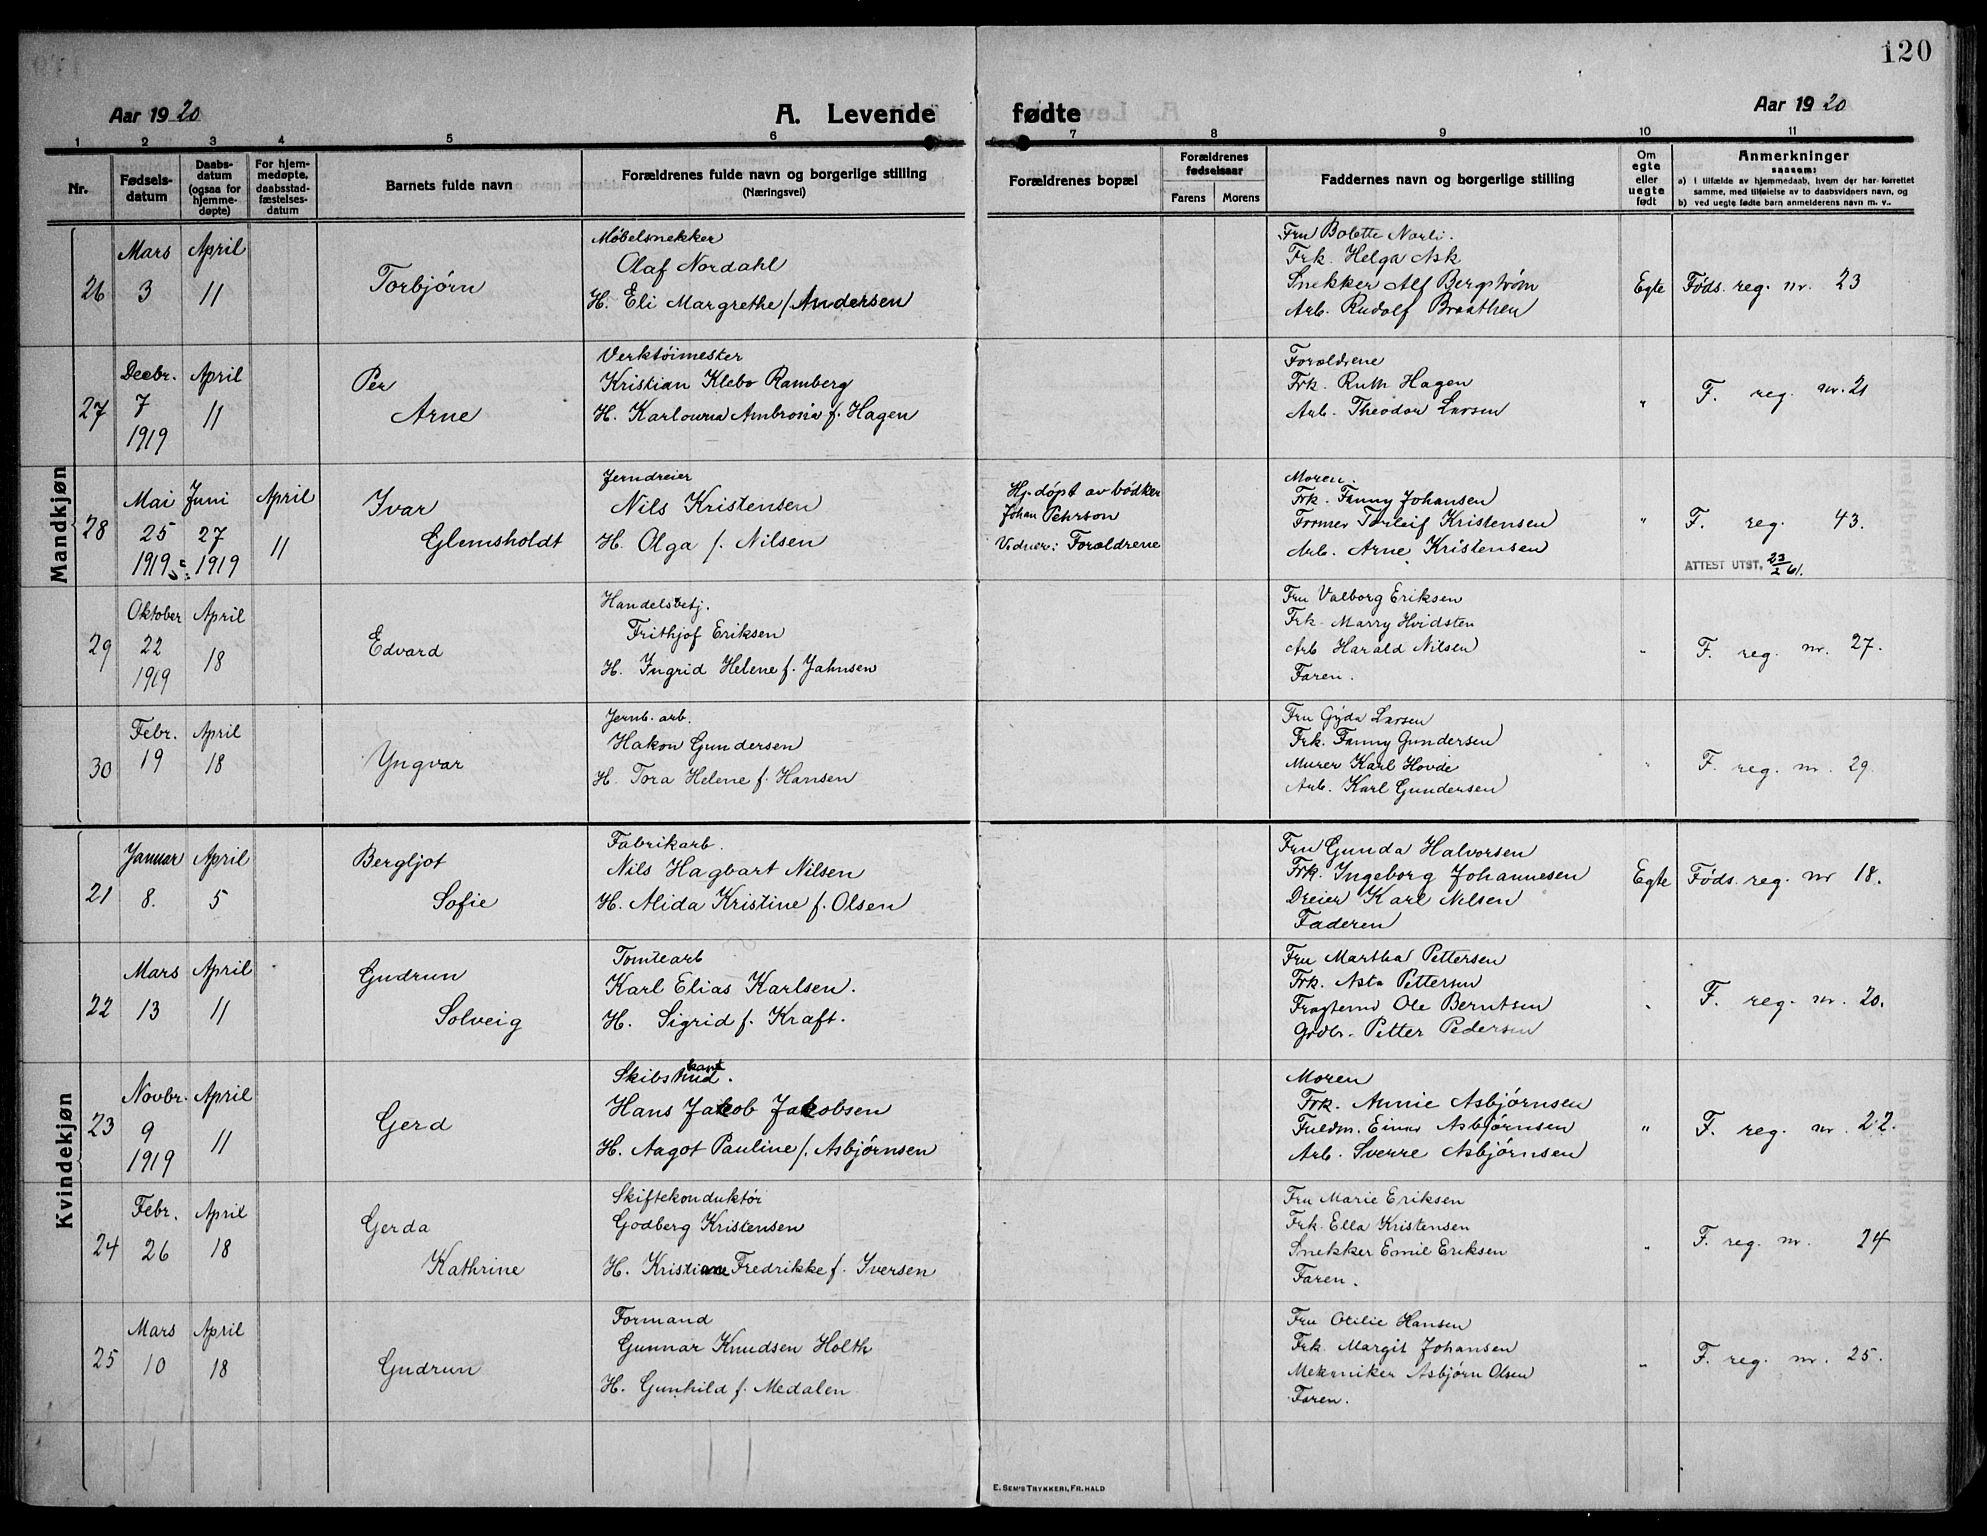 120
Aar 1920
A. Levende fødte
Aar 1920
1 2 3 4 5 6 7 8 9 10 11
Nr.
Fødsels-
datum
Daabs-
datum
(ogsaa for
hjemme-
døpte)
For hjem-
medøpte,
daabsstad-
fæstelses-
datum
Barnets fulde navn
Forældrenes fulde navn og borgerlige stilling
(Næringsvei)
Forældrenes bopæl
Forældrenes
fødselsaar
Farens Morens
Faddernes navn og borgerlige stilling
Om
egte
eller
uegte
født
Anmerkninger
saasom:
a) i tilfælde av hjemmedaab, hvem der har forrettet
samme, med tilføielse av to daabsvidners navn, og
b) ved uegte fødte barn anmelderens navn m. v..
Mandkjøn
26
Mars
3
April
11
Torbjørn
Møbelsnekker
Olaf Nordahl
H. Eli Margrethe f. Andersen
Fru Bolette Norli.
Frk. Helga Ask
Snekker Alf Bergstrøm
Arb. Rudolf Braathen
Egte
Føds. reg. nr. 23
27
Decbr.
7
1919
April
11
Per
Arne
Verktøimester
Kristian Klebo Ramberg
H. Karlowna Ambrosia f. Hagen
Forældrene
Frk. Ruth Hagen
Arb. Theodor Larsen
"
F. reg. nr. 21
28
Mai
25
1919
Juni
27
1919
April
11
Ivar
Glemsholdt
Jerndreier
Nils Kristensen
H. Olga f. Nilsen
Hj. døpt av bødker
Johan Pehrson
Vidner: Forældrene
Moren.
Frk. Fanny Johansen
Former Torleif Kristensen
Arb. Arne Kristensen
"
F. reg. 43.
ATTEST UTST. 23/2 61.
29
Oktober
22
1919
April
18
Edvard
Handelsbetj.
Frithjof Eriksen
H. Ingrid Helene f. Jahnsen
Fru Valborg Eriksen
Frk. Marry Hvidsten
Arb Harald Nilsen
Faren.
"
F. reg. nr. 27.
30
Febr.
19
April
18
Yngvar
Jernb. arb.
Hakon Gundersen
H. Tora Helene f. Hansen
Fru Gyda Larsen
Frk. Fanny Gundersen
Murer Karl Hovde
Arb. Karl Gundersen
"
F. reg. nr. 29.
Kvindekjøn
21
Januar
8.
April
5
Bergljot
Sofie
Fabrikarb.
Nils Hagbart Nilsen
H. Alida Kristine f. Olsen
Fru Gunda Halvorsen
Frk. Ingeborg Johannesen
Dreier Karl Nilsen
Faderen
Egte
Føds. reg. nr 18.
22
Mars
13
April
11
Gudrun
Solveig
Tomtearb
Karl Elias Karlsen.
H. Sigrid f. Kraft.
Fru Martha Pettersen
Frk. Asta Pettersen
Ole Berntsen
Grdbr. Petter Pedersen
"
F. reg. nr. 20.
23
Novbr.
9
1919
April
11
Gerd
Skibs
Hans Jakob Jakobsen
H. Aagot Pauline f. Asbjørnsen
Moren
Frk. Annie Asbjørnsen
Fuldm. Einar Asbjørnsen
Arb. Sverre Asbjørnsen
"
F. reg. nr. 22.
24
Febr.
26
April
18
Gerda
Kathrine
Skiftekonduktør
Godberg Kristensen
H. Kristiane Fredrikke f. Iversen
Fru Marie Eriksen
Frk. Ella Kristensen
Snekker Emil Eriksen
Faren.
"
F. reg. nr. 24
25
Mars
10
April
18
Gudrun
Formand
Gunnar Knudsen Holth
H. Gunhild f. Medalen
Fru Otilie Hansen
Frk. Margit Johansen
Mekaniker Asbjørn Olsen
Faren.
"
F. reg. nr. 25.
E. SEM'S TRYKKERI, FR. HALD